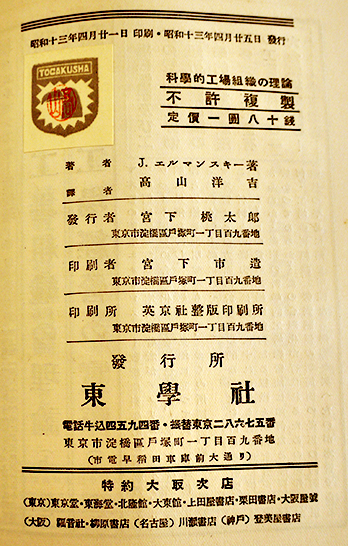 昭和十三年四月廿一日 印刷・昭和十三年四月廿五日 發行
TOGAKUSHA
科學的工場組織の理論
不許複製
定價一圓八十錢
著者 J. エルマンスキー著
譯者 高山洋吉
發行者 宮下桃太郎
東京市淀橋區戶塚町一丁目百九番地
印刷者 宮下市造
東京市淀橋區戶塚町一丁目百九番地
印刷所 英京社整版印刷所
東京市淀橋區戶塚町一丁目百九番地
發行所
東學社
電話牛込四五九四番・振替東京二八六七五番
東京市淀橋區戶塚町一丁目百九番地
(市電早稻田車庫前大通り)
特約大取次店
(東京)東京堂・東海堂・北隆館・大東館・上田屋書店・栗田書店・大阪屋號
(大阪) 福音社・柳原書店 (名古屋) 川瀨書店 (神戶) 登美屋書店